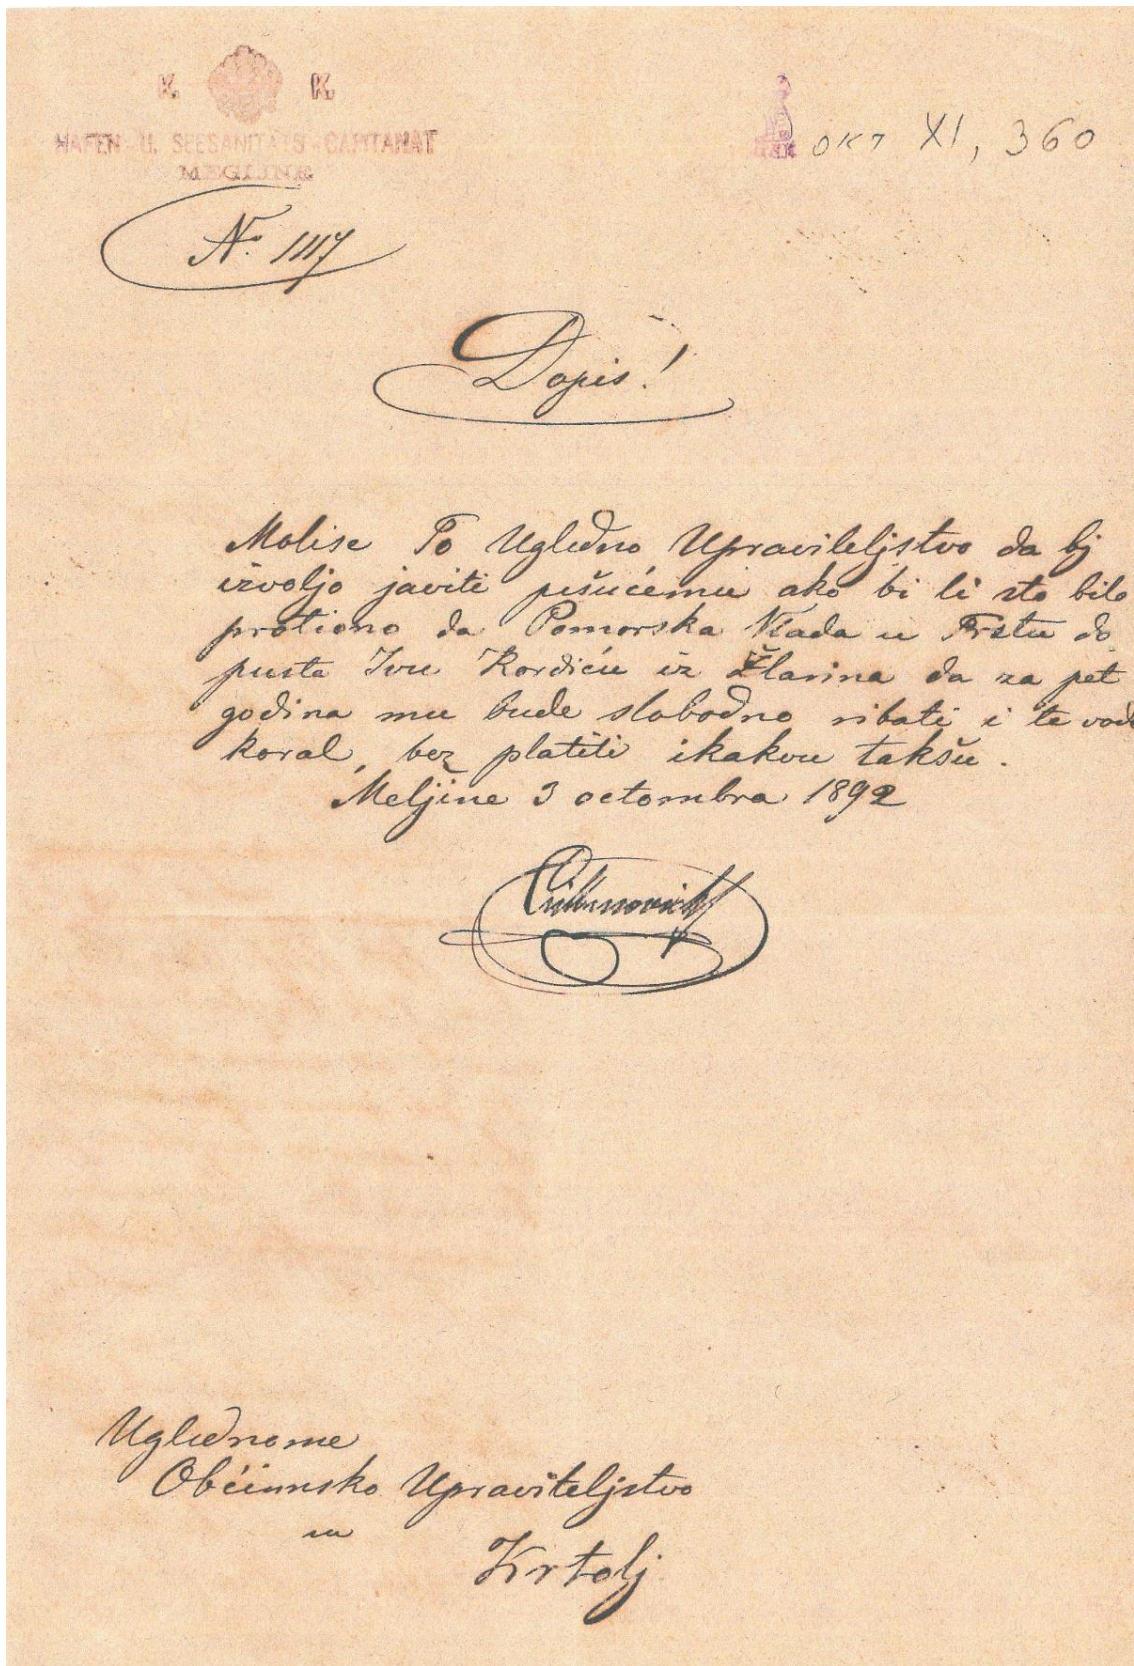 K. K.
HAFEN U. SEESANITÄTS-CAPITANAT
MEGLINE
окт XI, 360
No. 1117
Dopis!
Molise To Ugledno Upraviteljstvo da bj
izvoljo javiti pišućemu ako bi li sto bilo
protivno da Pomorska Vlada u Trstu do
pusta Ivu Kordiću iz Zlarina da za pet
godina mu bude slobodno ribati i te vode
koral, bez platiti ikakvu takšu.
Meljine 3 octombra 1892
Uglednome
Obćinnsko Upraviteljstvo
u
Krtolj